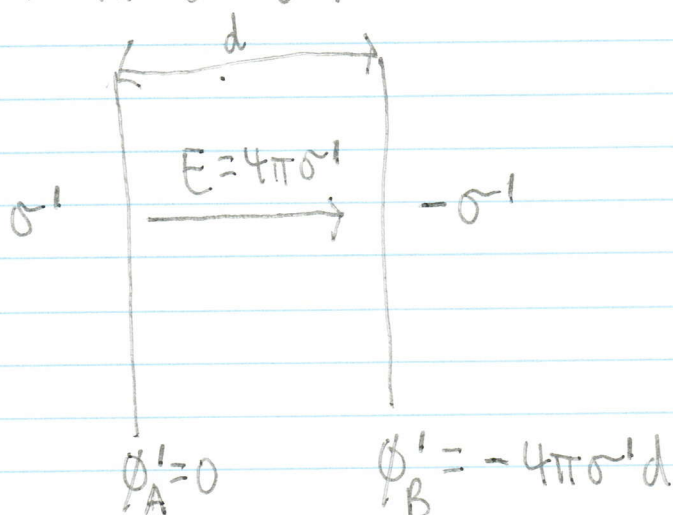 d
E = 4πσ'
σ' -σ'
ϕ'_A = 0 ϕ'_B = -4πσ'd